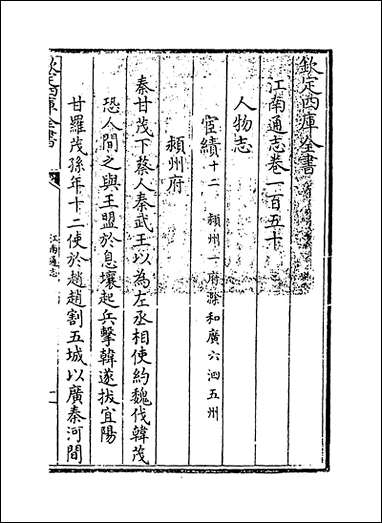 欽定四庫全書
江南通志卷一百五十
人物志
宦績十二 潁州一府滁和廣六泗五州
潁州府
秦甘茂下蔡人秦武王以為左丞相使約魏伐韓茂
恐人間之與王盟於息壤起兵擊韓遂拔宜陽
甘羅茂孫年十二使於趙趙割五城以廣秦河間
欽定四庫全書
江南通志
一